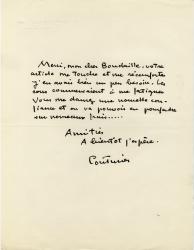 Merci, mon cher Boudaille, votre
article me touche et me réconforte
j'en avais bien un peu besoin. Les
sous commençaient à me fatiguer
Vous me donnez une nouvelle con-
fiance et on va pouvoir en pourfendre
sur nouveaux frais.....
Amitiés
A bientôt j'espère.